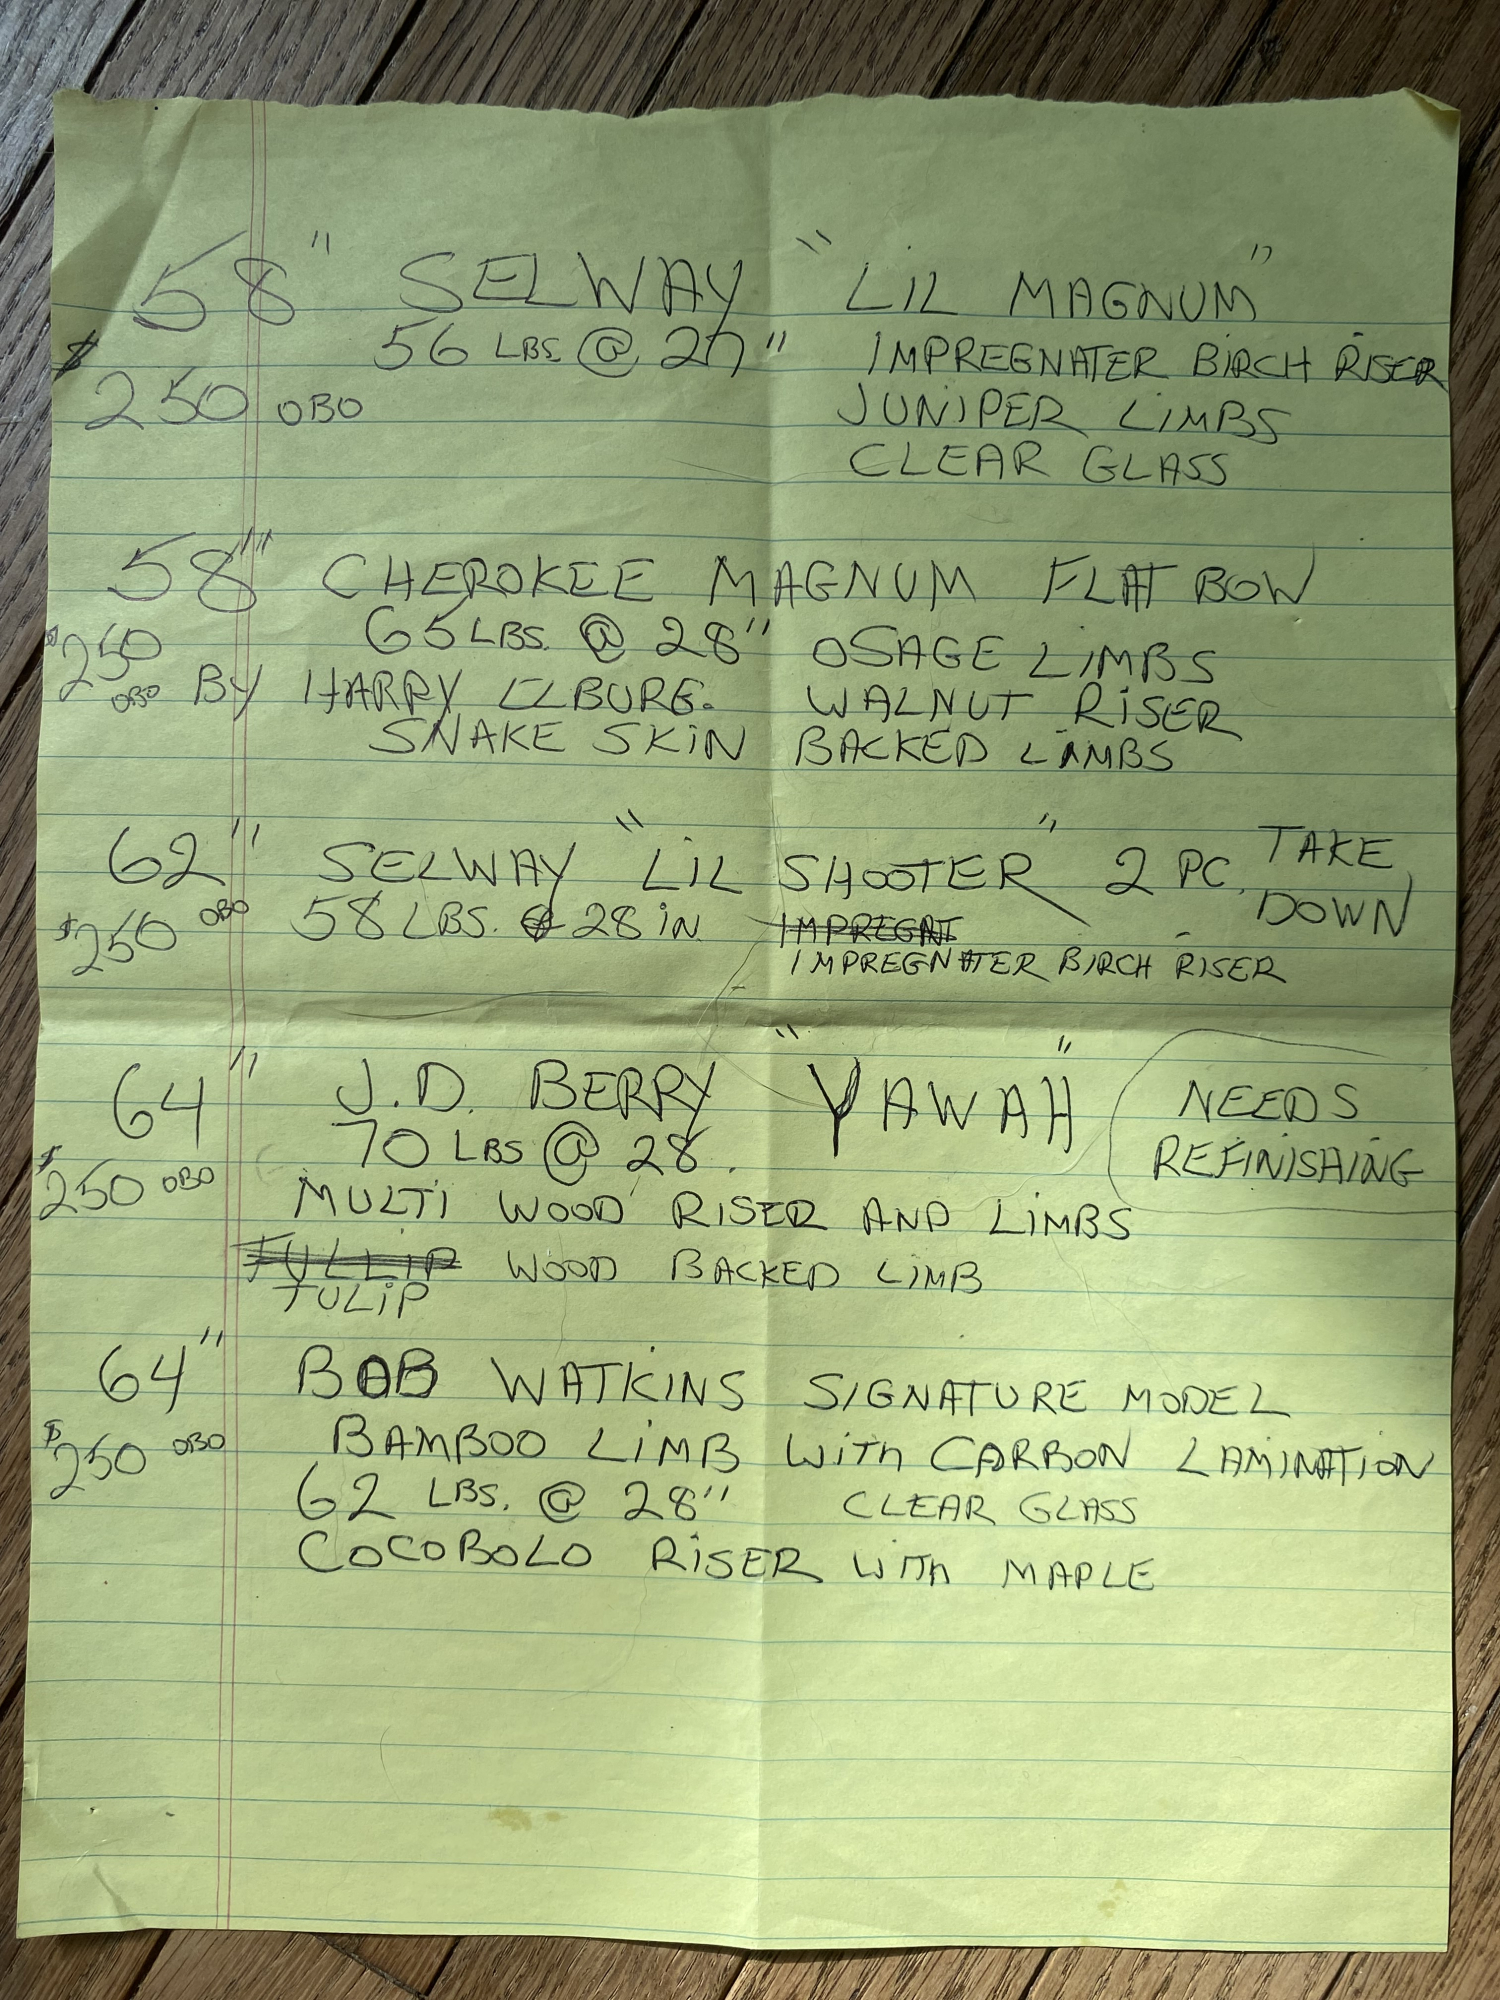 58" SELWAY "LIL MAGNUM"
56 LBS @ 27" IMPREGNATER BIRCH RISER
$250 OBO JUNIPER LIMBS
CLEAR GLASS
58" CHEROKEE MAGNUM FLAT BOW
65 LBS. @ 28" OSAGE LIMBS
$250 OBO BY HARRY ELBURG. WALNUT RISER
SNAKE SKIN BACKED LIMBS
62" SELWAY "LIL SHOOTER" 2 PC. TAKE DOWN
$250 OBO 58 LBS. @ 28 IN IMPREGNT
IMPREGNATER BIRCH RISER
64" J.D. BERRY "YAWAH" NEEDS
70 LBS @ 28. REFINISHING
$250 OBO MULTI WOOD RISER AND LIMBS
TULLIP WOOD BACKED LIMB
TULIP
64" BOB WATKINS SIGNATURE MODEL
$250 OBO BAMBOO LIMB WITH CARBON LAMINATION
62 LBS. @ 28" CLEAR GLASS
COCOBOLO RISER WITH MAPLE